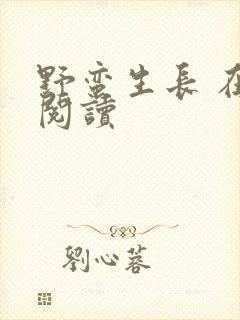 野蛮生長 在
閱讀
劉心蓉